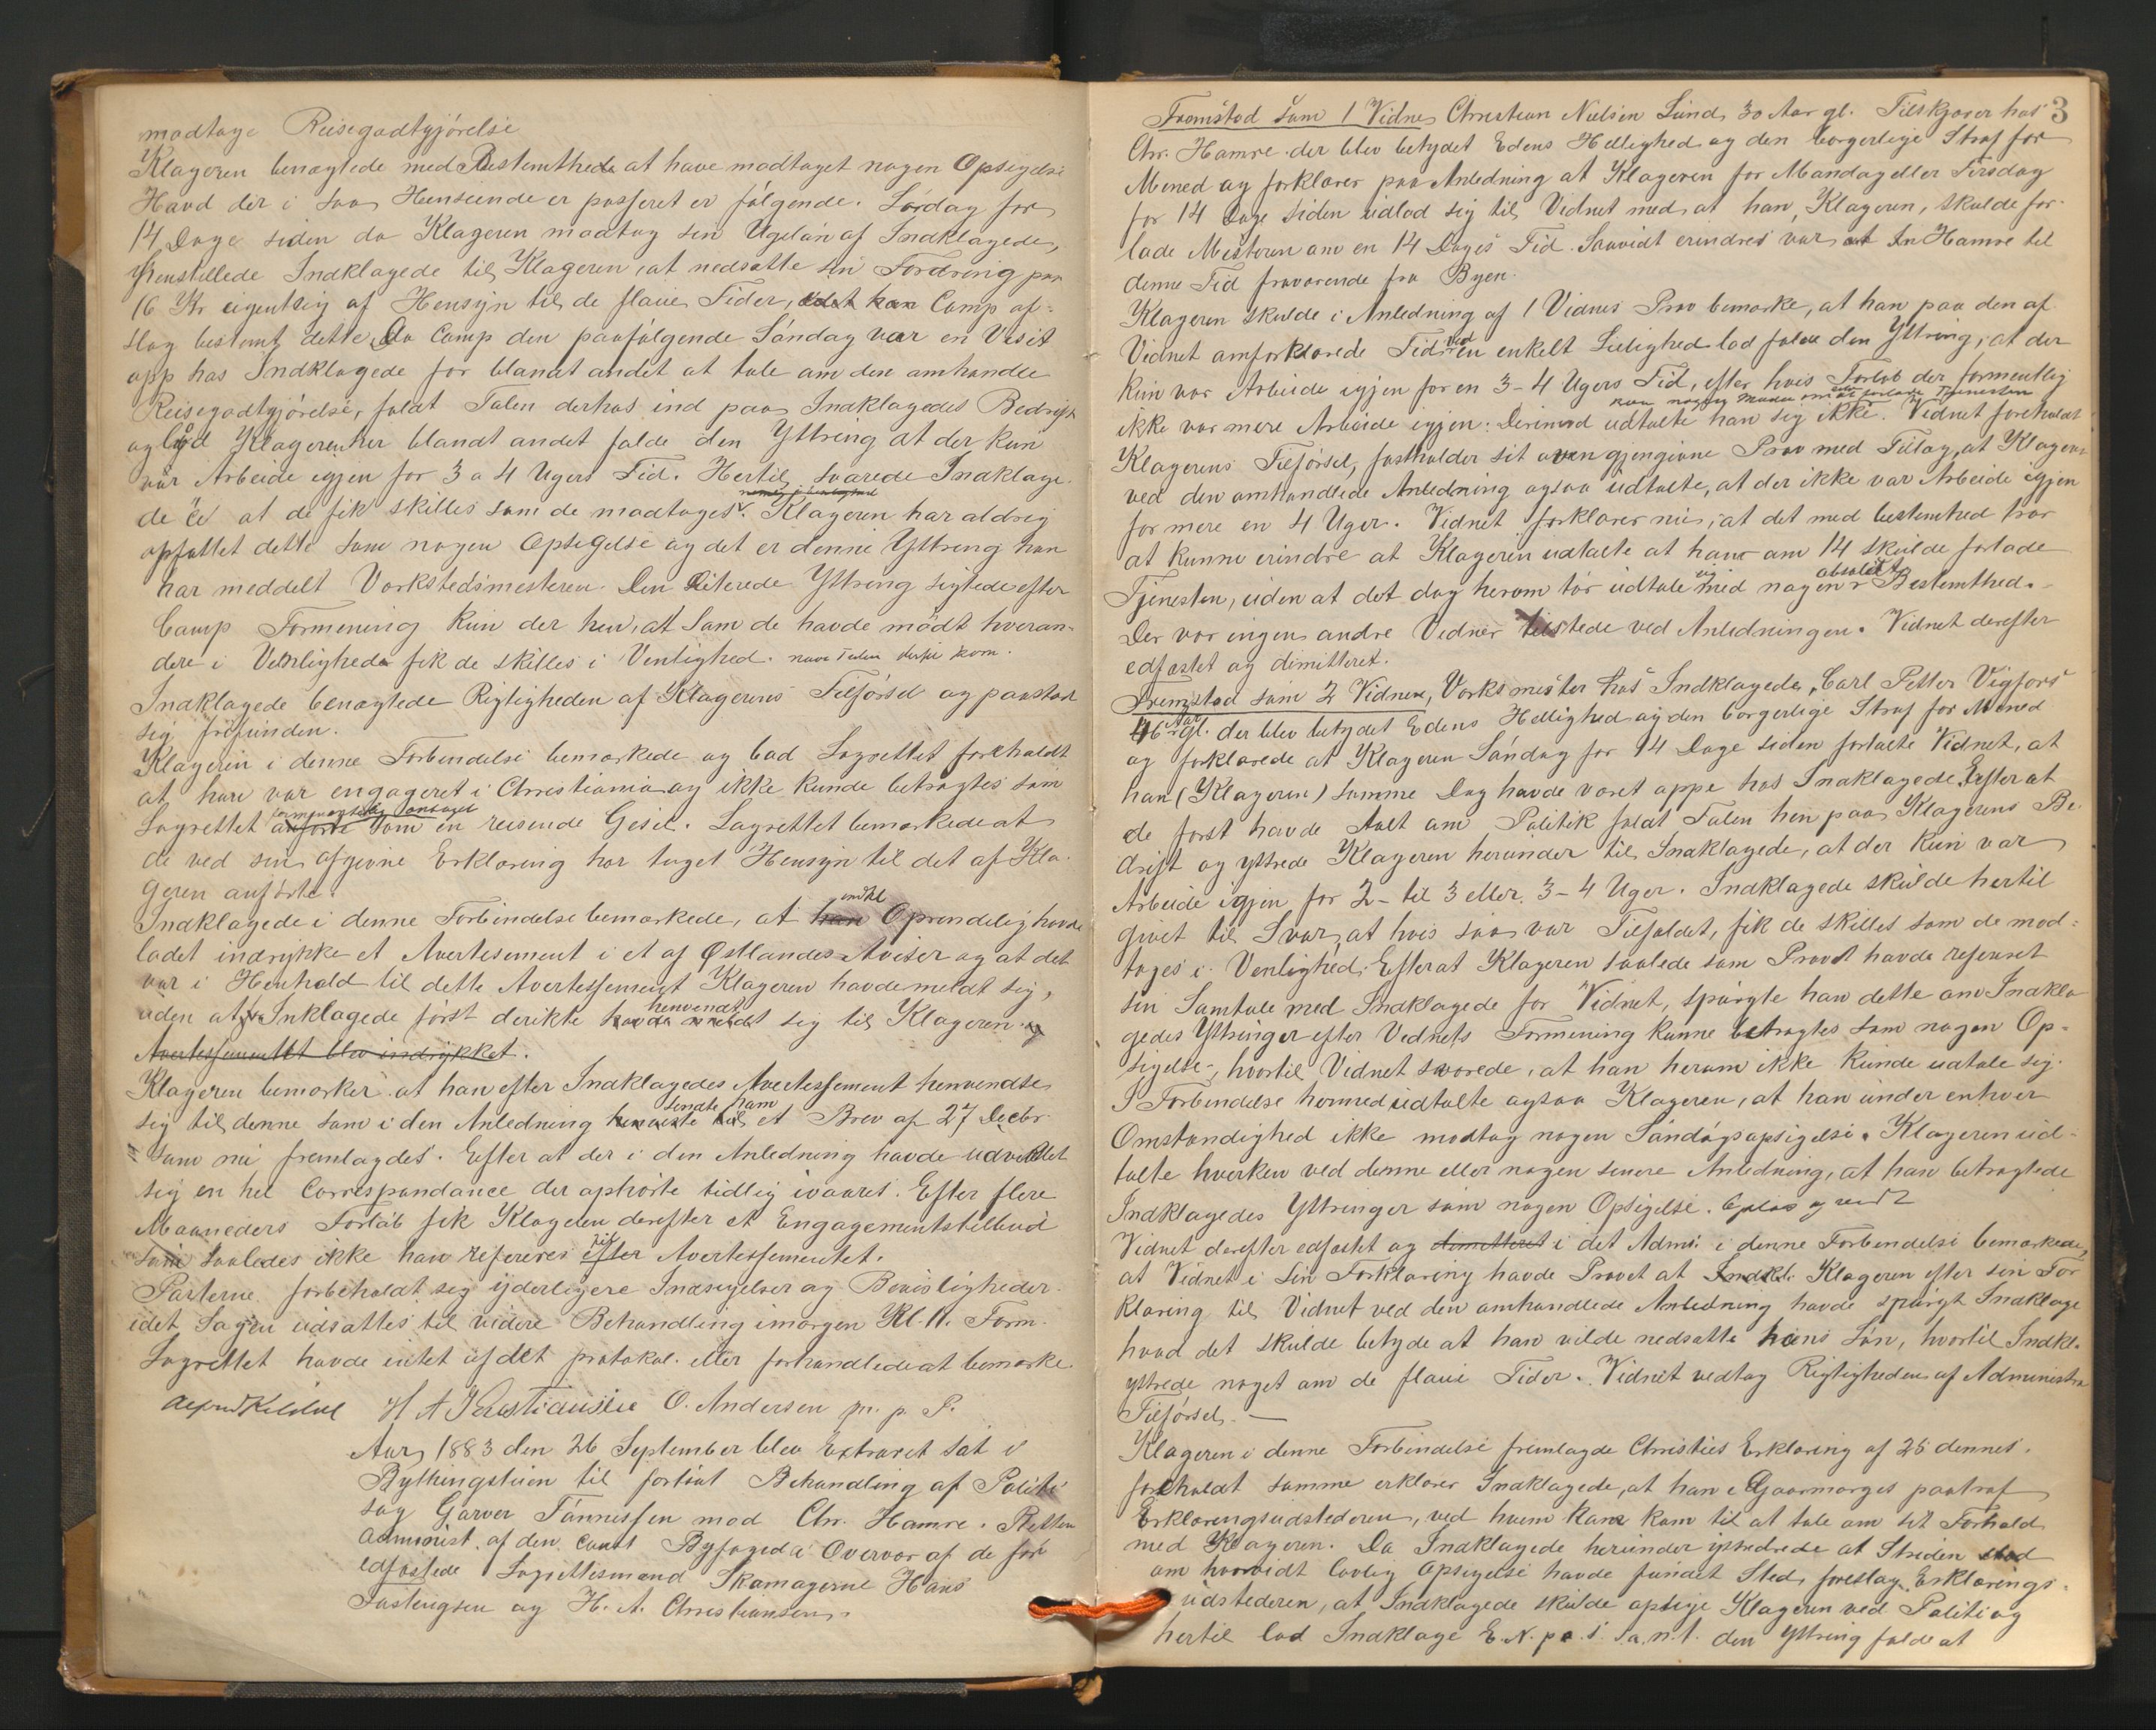 modtage Reisegodtgjörelse
Klageren benægtede med Bestemthed at have modtaget nogen Opsigelse
Hvad der i saa Henseende er passeret er fölgende. Lördag for
14 Dage siden da Klageren modtog sin Ugelön af Indklagede,
henstillede Indklagede til Klageren, at nedsætte sin Fordring paa
16 Kr egentlig af Hensyn til de flaue Tider, Comp af-
slog bestemt dette. Da Comp den paafölgende Söndag var en Visit
opp hos Indklagede for blandt andet at tale om den omhandlede
Reisegodtgjörelse, faldt Talen derhos ind paa Indklagedes Bedrift
og lod Klageren her blandt andet falde den Yttring at der kun
var Arbeide igjen for 3 a 4 Ugers Tid. Hertil svarede Indklage-
de at de fik skilles som de modtoges. Klageren har aldrig
opfattet dette som nogen Opsigelse og det er denne Yttring han
har meddelt Værkstedsmesteren. Den citerede Yttring sigtede efter
Comp Formening kun der hen, at som de havde mödt hveran-
dre i Venlighed fik de skilles i Venlighed.
Indklagede benægtede Rigtigheden af Klagerens Tilförsel og paastod
sig frifunden.
Klageren i denne Forbindelse bemærkede og bad Lagrettet foreholdt
at han var engageret i Christiania og ikke kunde betragtes som
Lagrettet som en reisende Gesel. Lagrettet bemærkede at
de ved sin afgivne Erklæring har taget Hensyn til det af Kla-
geren anförte.
Indklagede i denne Forbindelse bemærkede, at Indkl Oprindelig havde
ladet indrykke et Avertesement i et af Østlandes Aviser og at det
var i Henhold til dette Avertessement Klageren havde meldt sig,
uden at Inklagede först derikte henvendt sig til Klageren
Avertessementet blev indrykket.
Klageren bemærker at han efter Indklagedes Avertessement henvendte
sig til denne som i den Anledning sendte ham et Brev af 27 Decbr
som nu fremlagdes. Efter at der i den Anledning havde udviklet
sig en hel Correspondance der ophörte tidlig ivaares. Efter flere
Maaneders Forlöb fik Klageren derefter et Engagementstilbud
som saaledes ikke kan refereres efter Avertessementet.
Parterne forbeholdt sig yderligere Indsigelser og Bevisligheder
idet Sagen udsattes til videre Behandling imorgen Kl. 11. Form.
Lagrettet havde intet af det protokol. eller forhandlede at bemærke.
H A Christiansen O. Andersen m. p. P.
Aar 1883 den 26 September blev Extraret sat i
Bythingstuen til fortsat Behandling af Politi
sag Garver Tönnessen mod Chr. Hamre. Retten
administ. af den const Byfoged i Overvær af de för
edfæstede Lagrettesmænd Skomagerne Hans
Justengsen og H. A. Christiansen.
3
Fremstod som 1 Vidne Christian Nielsen Lund, 30 Aar gl. Tilskjærer hos
Chr. Hamre. der blev betydet Edens Hellighed og den borgerlige Straf for
Mened og forklarer paa Anledning at Klageren for Mandag eller Tirsdag
for 14 Dage siden udlod sig til Vidnet med at han, Klageren, skulde for-
lade Mesteren om en 14 Dages Tid. Saavidt erindres var Hamre til
denne Tid fraværende fra Byen.
Klageren skulde i Anledning af 1 Vidnes Prov bemærke, at han paa den af
Vidnet omforklarede Tid ved en enkelt Leilighed lod falde den Yttring, at der
kun var Arbeide igjen for en 3-4 Ugers Tid, efter hvis Forlöb der formentlig
ikke var mere Arbeide igjen. Derimod udtalte han sig ikke. Vidnet foreholdt
Klagerens Tilförsel, fastholder sit ovengjengivne Prov med Tillæg, at Klageren
ved den omhandlede Anledning ogsaa udtalte, at der ikke var Arbeide igjen
for mere en 4 Uger. Vidnet forklarer nu, at det med bestemthed tror
at kunne erindre at Klageren udtalte at han om 14 skulde forlade
Tjenesten, uden at det dog herom tör udtale med nogen absolut Bestemthed.
Der var ingen andre Vidner tilstede ved Anledningen. Vidnet derefter
edfæstet og dimitteret.
Fremstod som 2 Vidne, Værksmester hos Indklagede, Carl Petter Vigfors
46 Aar gl. der blev betydet Edens Hellighed og den borgerlige Straf for Mened
og forklarede at Klageren Söndag for 14 Dage siden fortalte Vidnet, at
han (Klageren) samme Dag havde været oppe hos Indklagede. Efter at
de först havde talt om Politik faldt Talen hen paa Klagerens Be-
drift og yttrede Klageren herunder til Indklagede, at der kun var
Arbeide igjen for 2- til 3 eller 3-4 Uger. Indklagede skulde hertil
givet til Svar, at hvis saa var Tilfældet, fik de skilles som de mod-
toges i Venlighed. Efterat Klageren saalede som Provet havde refereret
sin Samtale med Indklagede for Vidnet, spurgte han dette om Indkla-
gedes Yttringer efter Vidnets Formening kunne betragtes som nogen Op-
sigelse, hvortil Vidnet svarede, at han herom ikke kunde udtale sig.
I Forbindelse hermed udtalte ogsaa Klageren, at han under enhver
Omstændighed ikke modtog nogen Söndagsopsigelse. Klageren ud-
talte hverken ved denne eller nogen senere Anledning, at han betragtede
Indklagedes Yttringer som nogen Opsigelse. Oplæst og vedt
Vidnet derefter edfæstet og dimitteret i det Admi. i denne Forbindelse bemærkede,
at Vidnet i sin Forklaring havde Provet at Klageren efter sin For
klaring til Vidnet ved den omhandlede Anledning havde spurgt Indklage
hvad det skulde betyde at han vilde nedsætte hans Lön, hvortil Indkl.
yttrede noget om de flaue Tider. Vidnet vedtog Rigtigheden af Administra
Tilförsel.
Klageren i denne Forbindelse fremlagde Christies Erklæring af 25 dennes.
foreholdt samme erklærer Indklagede, at han i Gaarmorges paatraf
Erklæringsudstederen, ved hvem han kom til at tale om sit Forhold
med Klageren. Da Indklagede herunder ystrede at Striden stod
om hvorvidt lovlig Opsigelse havde fundet Sted, foreslog Erklærings-
udstederen, at Indklagede skulde opsige Klageren ved Politi og
hertil lod Indklage den Yttring falde at